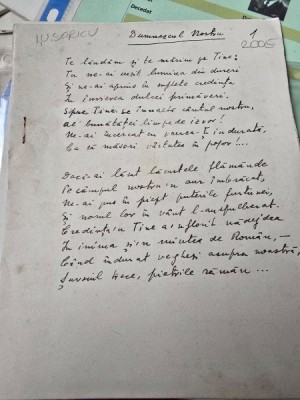 Decedat
IUSORICU
Dumnezeul Nostru
1
2005
Te lăudăm și te mărim pe Tine!
Tu ne-ai ivit lumina din dureri
Și ne-ai aprins în suflete credința
În învierea dulcei primăveri.
Spre Tine se înnalță cântul nostru,
al bunătății limpede izvor!
Ne-ai încercat cu vrerea-Ți îndurată,
Ca să măsori răbdarea în popor...
Deci-ai lăsat lăcustele flămânde
Pe câmpul nostru-n aur îmbrăcat,
Ne-ai pus în piept puterile furtunei,
Și norul lor în vânt l-ai spulberat.
Credința-n Tine a-nflorit nădejdea
În inima și-n mintea de Român, —
Când îndurat veghezi asupra noastră,
Șuvoiul trece, pietrele rămân...